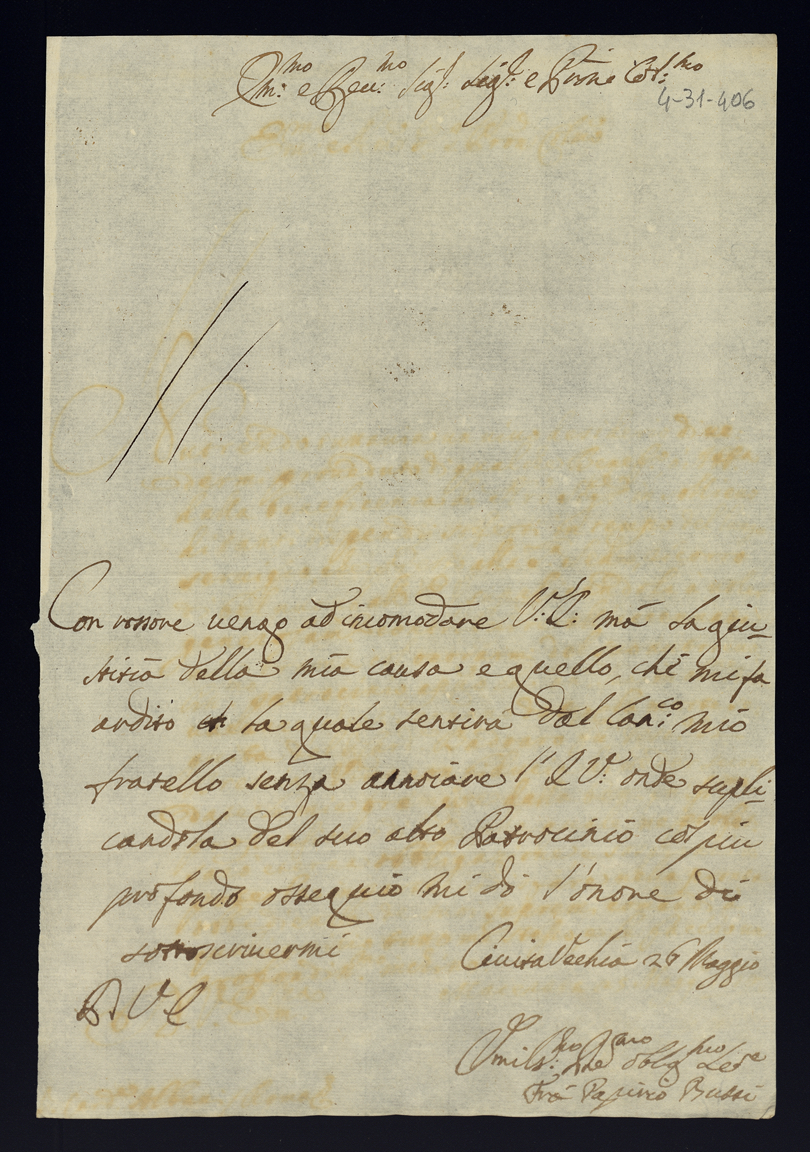 Em:mo e Reu:mo Sig.r Sig.r e P'rone Col:mo
4-31-406
Con rossore uengo ad incomodare V: E: mà la giu-
stizia della mia causa e quello, che mi fa
ardito la quale sentirà dal Can:co mio
fratello senza annoiare l'E V: onde supli-
candola del suo alto Patrocinio col piu
profondo ossequio mi dò l'onore di
sottoscriuermi
D. V E
Ciuita Vecchia 26 Maggio
Vmils:mo De:mo obblg:mo Ser.e
Frà Papirio Bussi